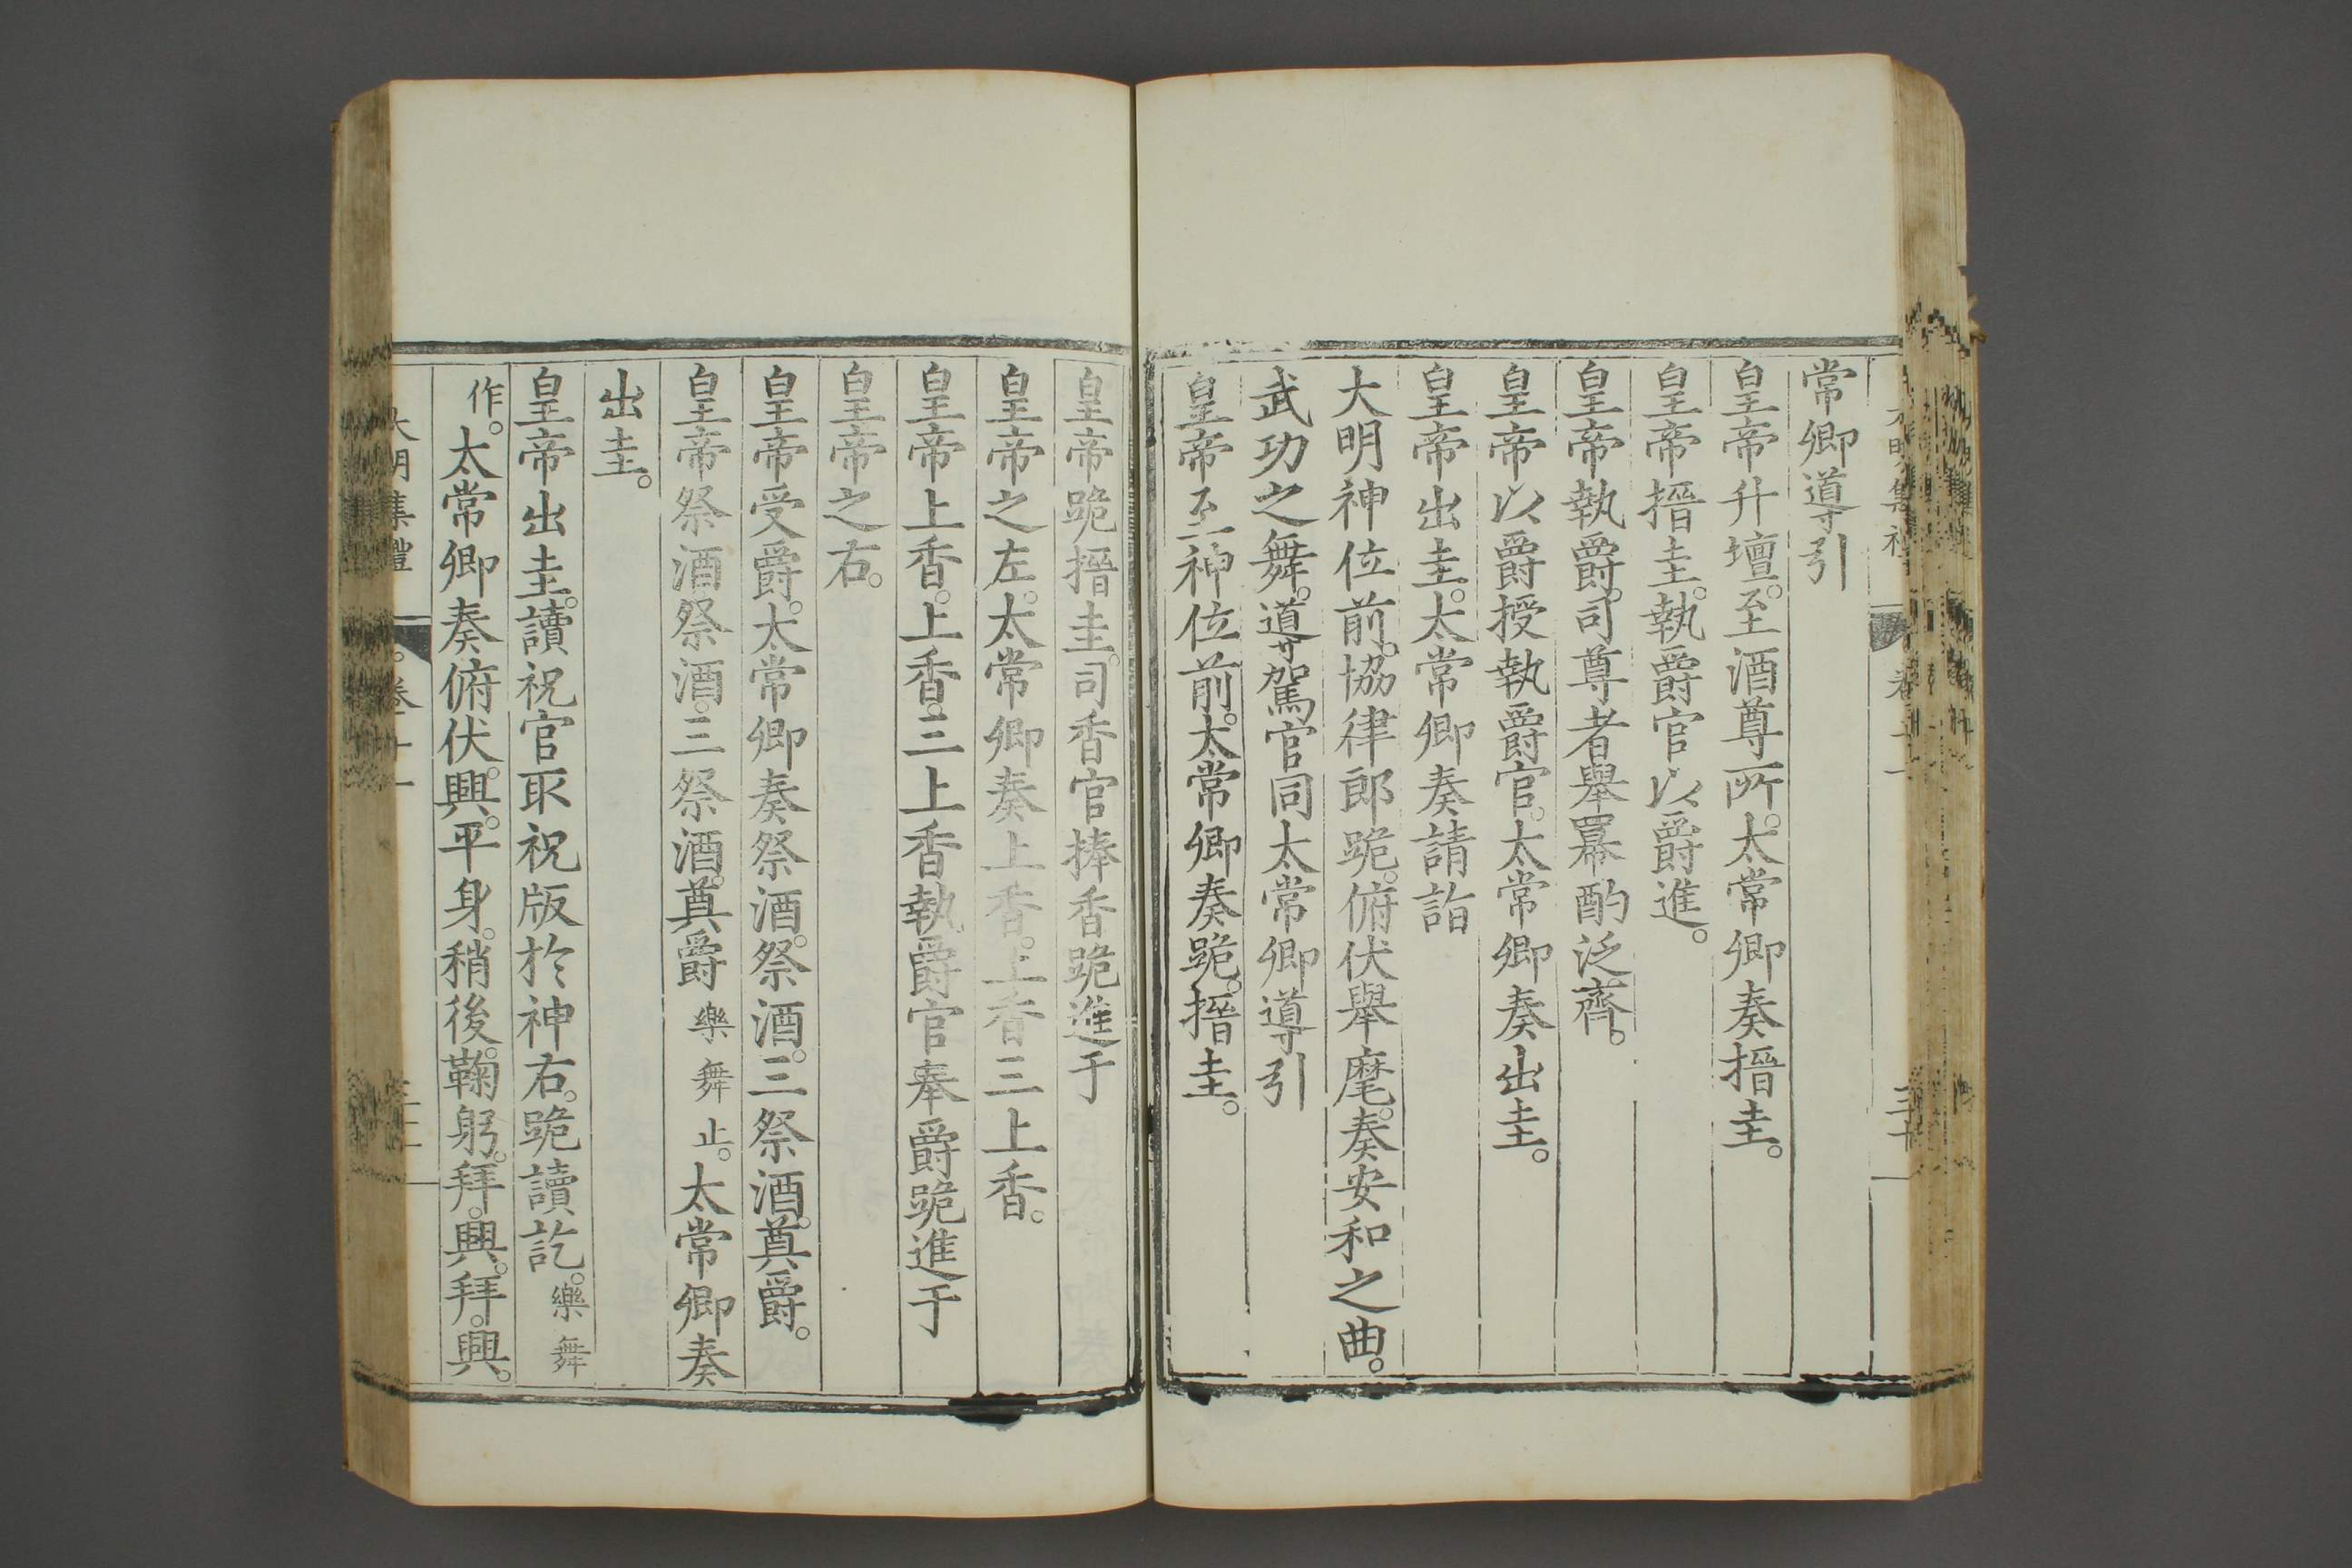 常卿導引
皇帝升壇。至酒尊所。太常卿奏搢圭。
皇帝搢圭。執爵官以爵進。
皇帝執爵。司尊者舉冪酌泛齊。
皇帝以爵授執爵官。太常卿奏出圭。
皇帝出圭。太常卿奏請詣
大明神位前。協律郎跪。俯伏舉麾。奏安和之曲。
武功之舞。導駕官同太常卿導引
皇帝至神位前。太常卿奏跪。搢圭。
皇帝跪搢圭。司香官捧香跪進于
皇帝之左。太常卿奏上香。上香三上香。
皇帝上香。上香。三上香執爵官奉爵跪進于
皇帝之右。
皇帝受爵。太常卿奏祭酒。祭酒。三祭酒。奠爵。
皇帝祭酒祭酒。三祭酒。奠爵樂舞止。太常卿奏
出圭。
皇帝出圭。讀祝官取祝版於神右。跪讀訖。樂舞
作。太常卿奏俯伏。興。平身。稍後。鞠躬。拜。興。拜。興。
大明集禮 卷十一